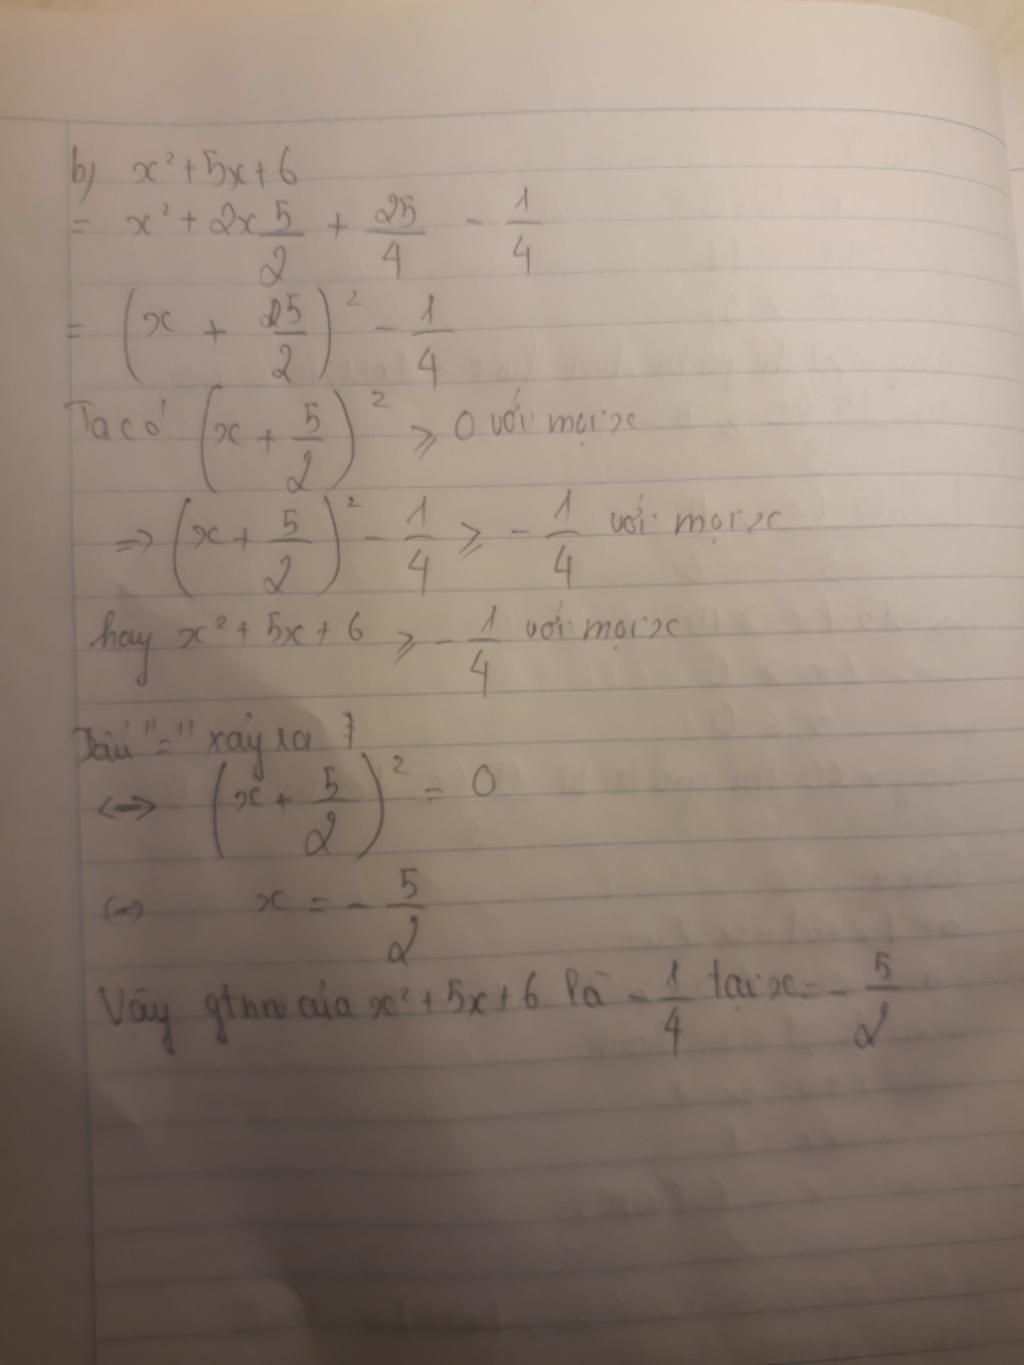 b) x² + 5x + 6
= x² + 2x 5/2 + 25/4 - 1/4
= (x + 25/2)² - 1/4
Ta có (x + 5/2)² ⩾ 0 với mọi x
=> (x + 5/2)² - 1/4 ⩾ - 1/4 với mọi x
hay x² + 5x + 6 ⩾ - 1/4 với mọi x
Dấu "=" xảy ra
<=> (x + 5/2)² = 0
<=> x = - 5/2
Vậy gtnn của x² + 5x + 6 là - 1/4 tại x = - 5/2